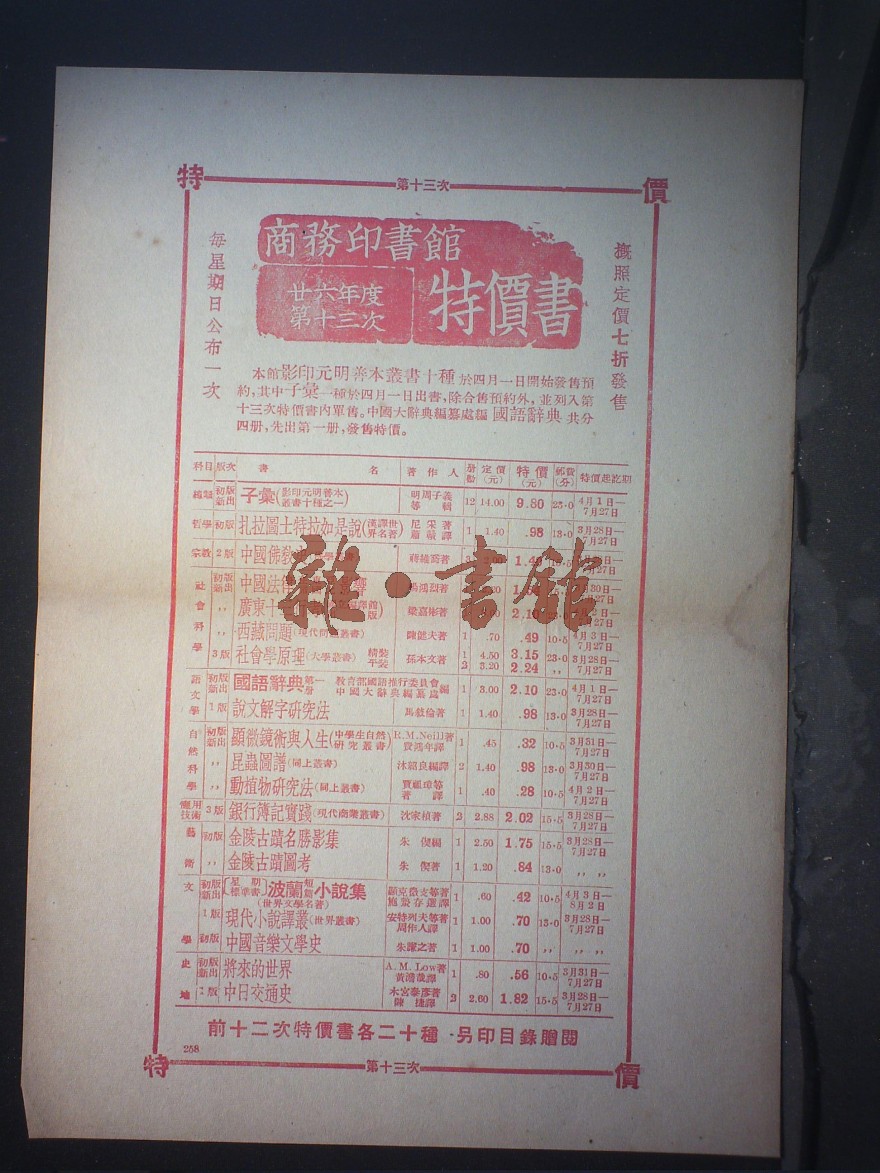 特 第十三次 價
商務印書館
廿六年度
第十三次
特價書
每星期日公布一次
概照定價七折發售
本館影印元明善本叢書十種於四月一日開始發售預
約，其中子彙一種於四月一日出書，除合售預約外，並列入第
十三次特價書內單售。中國大辭典編纂處編 國語辭典 共分
四册，先出第一册，發售特價。
科目 版次 書名 著作人 册數 定價(元) 特價(元) 郵費(分) 特價起訖期
總類 初版新出 子彙(影印元明善本叢書十種之一) 明周子義等輯 12 14.00 9.80 23·0 4月1日—7月27日
哲學 初版 扎拉圖士特拉如是說(漢譯世界名著) 尼采著 蕭贛譯 1 1.40 .98 13·0 3月28日—7月27日
宗教 2版 中國佛教 蔣維喬著 3 7月27日
社會科學 初版新出 中國法律 楊鴻烈著 30日—7月27日
〃 廣東十 梁嘉彬著 2.10 7月27日
〃 西藏問題(現代問題叢書) 陳健夫著 1 .70 .49 10·5 4月3日—7月27日
3版 社會學原理(大學叢書) 精裝 平裝 孫本文著 1 2 4.50 3.20 3.15 2.24 23·0 〃 3月28日—7月27日
語文學 初版新出 國語辭典第一册 教育部國語推行委員會中國大辭典編纂處編 1 3.00 2.10 23·0 4月1日—7月27日
1版 說文解字研究法 馬敘倫著 1 1.40 .98 13·0 3月28日—7月27日
自然科學 初版新出 顯微鏡術與人生(中學生自然研究叢書) R.M.Neill著 費鴻年譯 1 .45 .32 10·5 3月31日—7月27日
〃 昆蟲圖譜(同上叢書) 沐紹良編譯 2 1.40 .98 13·0 3月30日—7月27日
〃 動植物研究法(同上叢書) 賈祖璋等著譯 1 .40 .28 10·5 4月2日—7月27日
應用技術 3版 銀行簿記實踐(現代商業叢書) 沈家楨著 2 2.88 2.02 15·5 3月28日—7月27日
藝術 初版 金陵古蹟名勝影集 朱偰編 1 2.50 1.75 15·5 3月28日—7月27日
〃 金陵古蹟圖考 朱偰著 1 1.20 .84 13·0 〃 〃
文學 初版新出 〔星期標準書〕波蘭短篇小說集(世界文學名著) 顯克微支等著 施蟄存選譯 1 .60 .42 10·5 4月3日—8月2日
1版 現代小說譯叢(世界叢書) 安特列夫等著 周作人譯 1 1.00 .70 13·0 3月28日—7月27日
初版 中國音樂文學史 朱謙之著 1 1.00 .70 〃 〃 〃
史地 初版新出 將來的世界 A.M.Low著 1 .80 .56 10·5 3月31日—7月27日
2版 中日交通史 木宮泰彥著 陳捷譯 2 2.60 1.82 15·5 3月28日—7月27日
前十二次特價書各二十種·另印目錄贈閱
258
特 第十三次 價
雜·書館